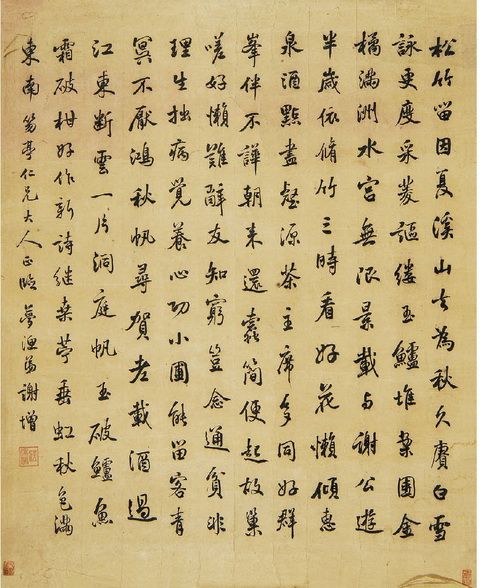 松竹留因夏溪山去為秋久賡白雪
詠更度采菱謳縷玉鱸堆案團金
橘滿洲水宮無限景載与謝公遊
半歲依脩竹三時看好花懶傾惠
泉酒點盡壑源茶主席多同好群
峯伴不譁朝来還蠹簡便起故巢
嗟好懶難辭友知窮豈念通貧非
理生拙病覺養心功小圃能留客青
冥不厭鴻秋帆尋賀老載酒過
江東斷雲一片洞庭帆玉破鱸魚
霜破柑好作新詩継桑苧垂虹秋色滿
東南 亭仁兄大人正臨 夢漁弟謝增